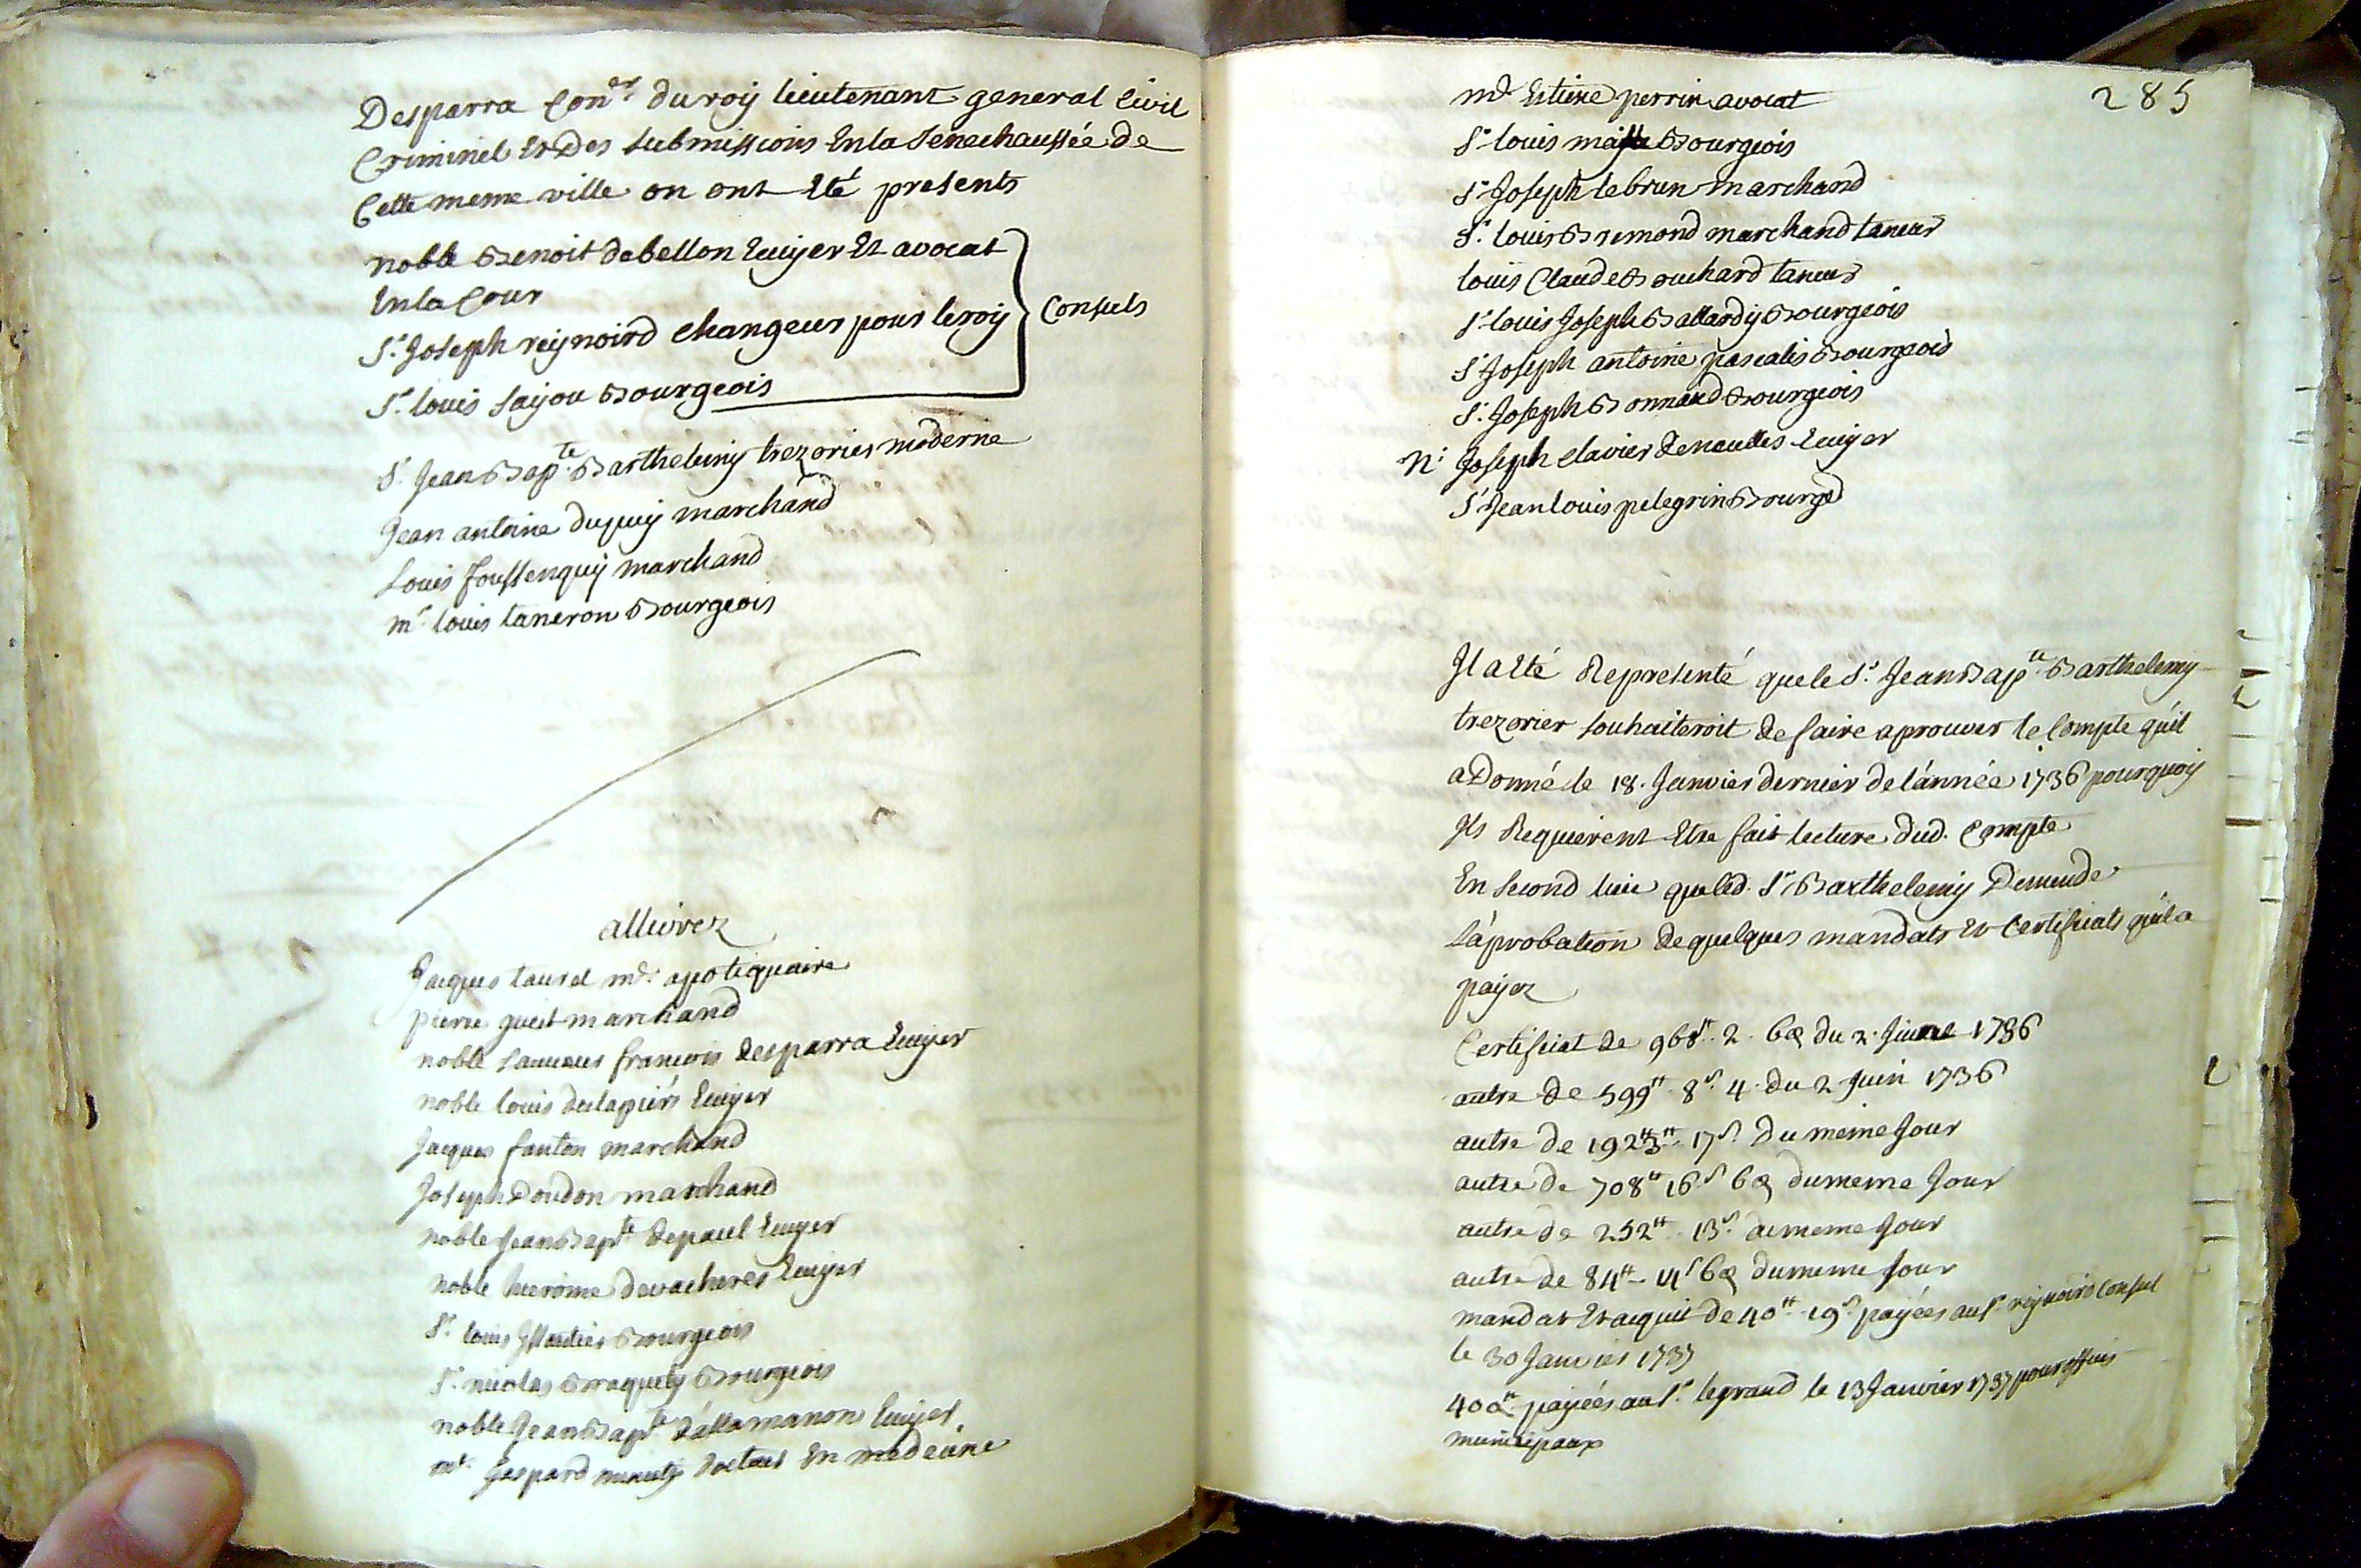 Desparra Con.er du roy lieutenant general Civil
Criminel Et Des submissions En la Senechaussée de
Cette meme ville on ont Eté presents
noble Benoit de bellon Ecuyer Et avocat
En la Cour
S.r Joseph reynoird changeur pour le roy
Consuls
S.r louis sayou Bourgeois
S.r Jean Bap.te Barthelemy trezorier moderne
Jean antoine dupuy marchand
Louis foussenquy marchand
m.r louis taneron Bourgeois
allivrez
Jacques taurel m.e apotiquaire
pierre gueit marchand
noble francois desparra Ecuyer
noble louis Ecuyer
Jacques fanton marchand
Joseph Doudon marchand
noble Jean Bap.te de paul Ecuyer
noble hierome devacheres Ecuyer
S.r louis Bourgeois
S.r nicolas Braquety Bourgeois
noble Jean Bap.te d'allamanon Ecuyer
m.e Gaspard docteur En medecine
285
m.e Estiene perrin avocat
S.r louis Bourgeois
S.r Joseph lebrun marchand
S.r louis Bremond marchand taneur
louis Claude Bouchard taneur
S.r louis Joseph Ballardy Bourgeois
S.r Joseph antoine pascalis Bourgeois
S.r Joseph Bonnaud Bourgeois
N.e Joseph clavier de naudes Ecuyer
S.r Jean louis pelegrin Bourgs
Il a Eté Representé que le S.r Jean Bap.te Barthelemy
trezorier souhaiteroit de faire aprouver le Compte qu'il
a Donné le 18. Janvier dernier de l'année 1736 pourquoy
Ils Requierent Etre fait lecture dud. Compte
En second lieu que led. S.r Barthelemy Demende
L'aprobation de quelques mandats Et Certificats qu'il a
payez
Certificat de 968.tt 2. 6d du 2. 1736
autre de 599tt 8s. 4. du 2 Juin 1736
autre de 17s. Du meme Jour
autre de 708tt 16s 6d du meme Jour
autre de 252tt 13s. du meme Jour
autre de 84tt 4s 6d du meme Jour
mandat Et aquit de 40tt 19s payées au S.r reynoird Consul
le 30 Janvier 1737
400tt payées au S.r legrand le 13 Janvier 1737 pour offices
municipaux